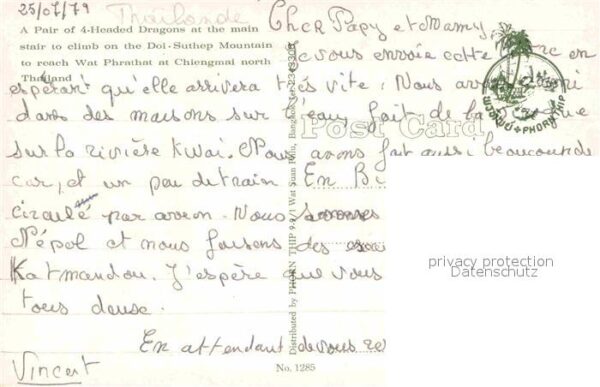 25/07/79 Thaïlande
Cher Papy et Mamy
A Pair of 4-Headed Dragons at the main
stair to climb on the Doi-Suthep Mountain
to reach Wat Phrathat at Chiengmai north
Thailand
vous envoie cette en
espérant qu'elle arrivera très vite. Nous
dans des maisons sur l'eau, fait de la
sur la rivière Kwai. Nous avons fait aussi beaucoup de
car, et un peu de train. En
circulé par avion. Nous sommes
Népal et nous faisons des
Katmandou. J'espère que vous
tous deux.
En attendant de vous
Vincent
Post Card
PHORN THIP
Distributed by PHORN THIP Bangkok
No. 1285
privacy protection
Datenschutz